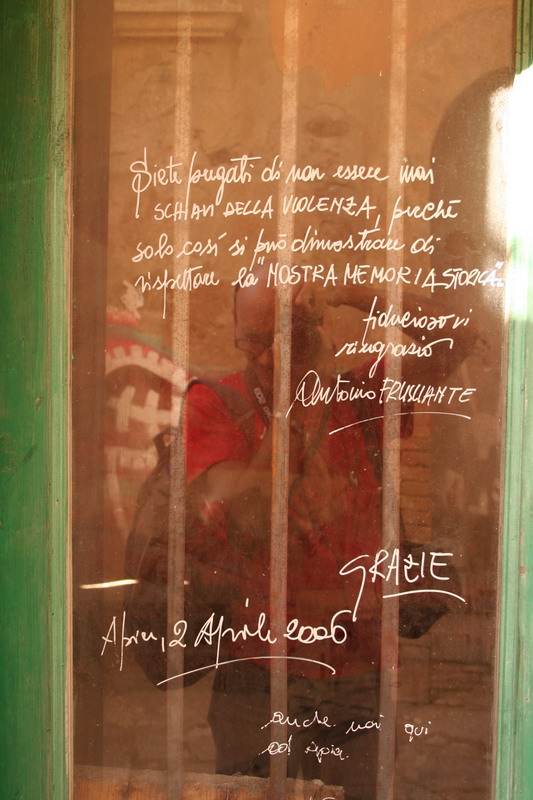 Siete pregati di non essere mai
SCHIAVI DELLA VIOLENZA, perchè
solo così si può dimostrare di
rispettare la "NOSTRA MEMORIA STORICA".
fiducioso vi
ringrazio
Antonio FRUSCIANTE
GRAZIE
Apice, 2 Aprile 2006
anche noi qui
ad apice.